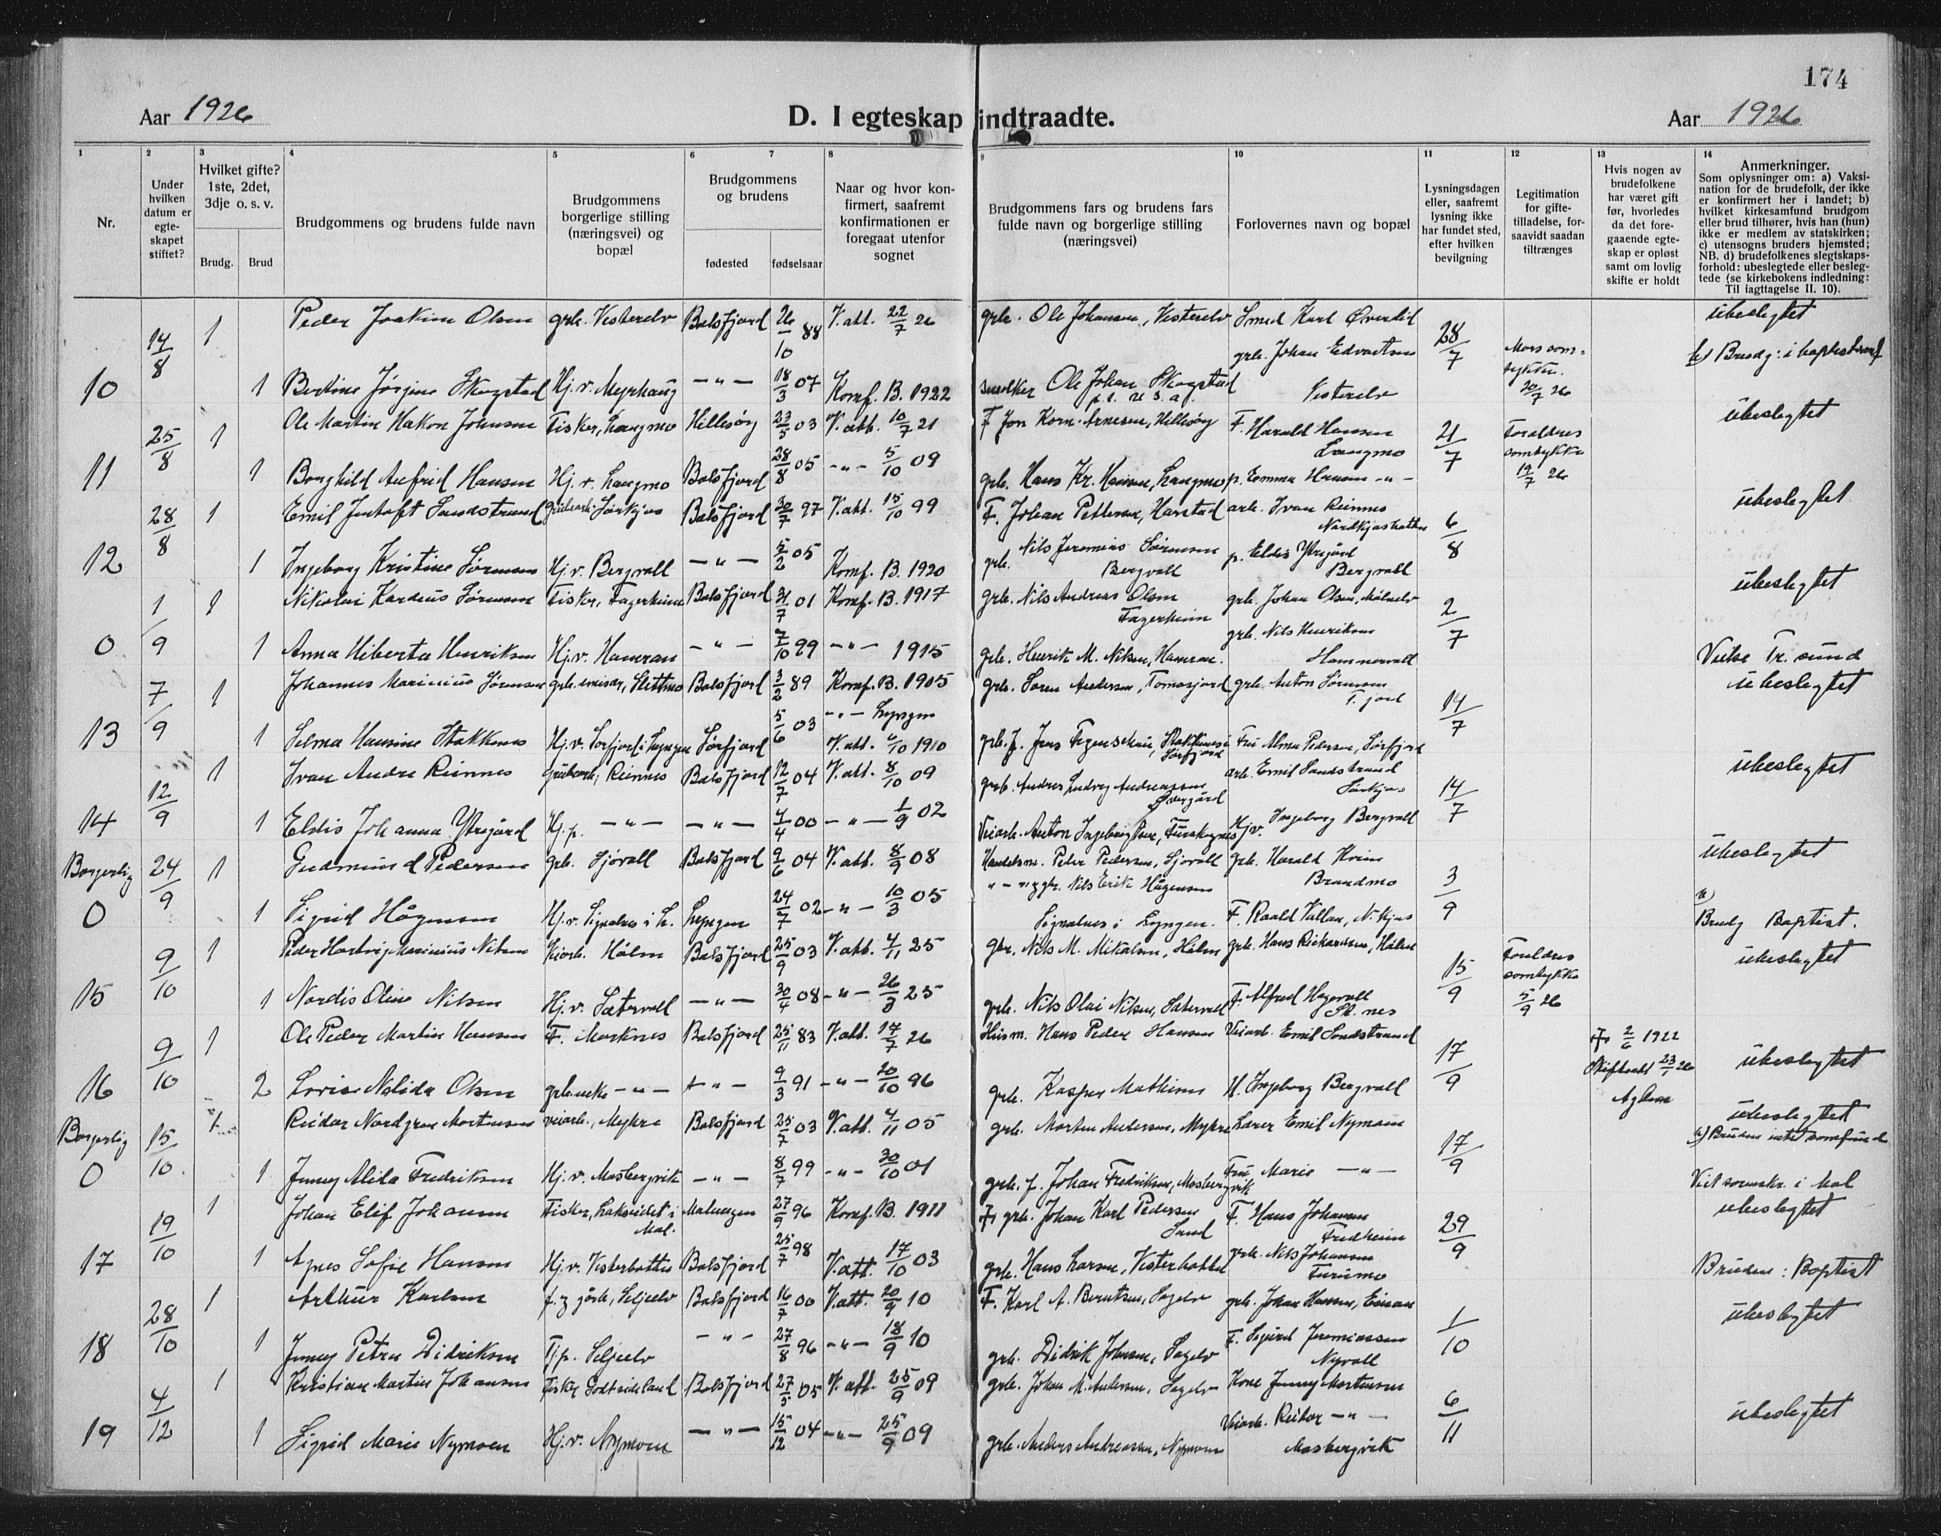 174
Aar 1926
D. I egteskap indtraadte.
Aar 1926
1 2 3 4 5 6 7 8 9 10 11 12 13 14
Nr.
Under hvilken datum er egte- skapet stiftet?
Hvilket gifte? 1ste, 2det, 3dje o. s. v.
Brudg. Brud
Brudgommens og brudens fulde navn
Brudgommens borgerlige stilling (næringsvei) og bopæl
Brudgommens og brudens
fødested fødselsaar
Naar og hvor kon- firmert, saafremt konfirmationen er foregaat utenfor sognet
Brudgommens fars og brudens fars fulde navn og borgerlige stilling (næringsvei)
Forlovernes navn og bopæl
Lysningsdagen eller, saafremt lysning ikke har fundet sted, efter hvilken bevilgning
Legitimation for gifte- tilladelse, for- saavidt saadan tiltrænges
Hvis nogen av brudefolkene har været gift før, hvorledes da det fore- gaaende egte- skap er opløst samt om lovlig skifte er holdt
Anmerkninger.
Som oplysninger om: a) Vaksi- nation for de brudefolk, der ikke er konfirmert her i landet; b) hvilket kirkesamfund brudgom eller brud tilhører, hvis han (hun) ikke er medlem av statskirken; c) utensogns bruders hjemsted; NB. d) brudefolkenes slegtskaps- forhold: ubeslegtede eller besleg- tede (se kirkebokens indledning: Til iagttagelse II. 10).
14/8 1 Peder Joakim Olsen grb. Vesterelv Balsfjord 26/10 88 V. att. 22/7 26 grb. Ole Johansen, Vesterelv Smed Karl Øverlid 28/7 ubeslegtet
grb. Johan Edvartsen
10 1 Bertine Jørgine Skogstad Hj. v. Myrhaug -"- 18/3 07 Konf. B. 1922 Ole Johan Skogstad Vesterelv 20/7 26
25/8 1 Ole Martin Hakon Johnsen Fisker, Langmo Hillesøy 23/5 03 V. att. 10/7 21 F. Jon Korn. Arnesen, Hillesøy F. Harald Hansen Langmo 21/7 Foreldres samtykke 19/7 26 ubeslegtet
11 1 Borghild Anfrid Hansen Hj. v. Langmo Balsfjord 28/8 05 -"- 5/10 09 grb. Hans Kr. Hansen, Langmo p. Emma Hansen -"-
28/8 1 Emil Sandstrand Sørkjos Balsfjord 30/7 97 V. att. 15/10 99 F. Johan Pettersen, Harstad arb. Ivar Reinnes 6/8 ubeslegtet
12 1 Ingeborg Kristine Sørensen Hj. v. Bergvoll -"- 5/2 05 Konf. B. 1920 grb. Nils Jeremias Sørensen Bergvoll p. Eldis Ytregård Bergvoll
1/9 1 Nikolai Kardius Sørensen Fisker, Fagerheim Balsfjord 31/7 01 Konf. B. 1917 grb. Nils Andreas Olsen Fagerheim grb. Johan Olsen, 2/7 ubeslegtet
grb. Nils Henriksen
0 1 Anna Hiberta Henriksen Hj. v. Hamran -"- 7/10 99 -"- 1915 grb. Henrik M. Nilsen, Hamran. Hammervoll Vielse Tr. sund
7/9 1 Johannes Marinius Sørensen Slettmo Balsfjord 3/2 89 Konf. B. 1905 grb. Søren Andersen, Tomasjord grb. Anton Sørensen T. jord 14/7 ubeslegtet
13 1 Selma Hansine Stakknes Hj. v. Sørfjord i Lyngen Sørfjord 5/6 03 -"- Lyngen V. att. 6/10 1910 Fru Alma Pedersen, Sørfjord
12/9 1 Ivar Andre Reinnes Reinnes Balsfjord 12/7 04 V. att. 8/10 09 grb. Andreas Ludvig Andreassen Øvergård arb. Emil Sandstrand Sørkjos 14/7 ubeslegtet
14 1 Eldis Johanna Ytregård Hj. p. -"- -"- 4/4 00 -"- 1/9 02 Veiarb. Anton Hj. v. Ingeborg Bergvoll
Borgerlig 24/9 1 Gudmund Pedersen grb. Sjøvoll Balsfjord 9/6 04 V. att. 8/9 08 Handelsm. Peder Pedersen, Sjøvoll grb. Harald Heim Brandmo 3/9 ubeslegtet
0 1 Sigrid Hågensen Hj. v. Signalnes i L. Lyngen 24/7 02 -"- 10/3 05 Nils Erik Hågensen Signalnes i Lyngen. F. Roald Vollan, N. kjos b) Brudg Baptist.
9/10 1 Peder Hartvig Marinius Nilsen Veiarb. Holm Balsfjord 25/9 03 V. att. 4/11 25 gbr. Nils M. Mikalsen, Holm grb. Hans Rickardsen, Holm 15/9 Foreldres samtykke 5/9 26 ubeslegtet
15 1 Nordis Oline Nilsen Hj. v. Sætervoll -"- 30/4 08 -"- 26/3 25 grb. Nils Olai Nilsen, Sætervoll F. Alfred Hagevoll St. nes
9/10 1 Ole Peder Martin Hansen F. Marknes Balsfjord 25/11 83 V. att. 17/7 26 Husm. Hans Peder Hansen Veiarb. Emil Sandstrand 17/9 † 2/6 1922 ubeslegtet
16 2 Lovise Nelida Olsen grb. enke -"- -"- 9/3 91 -"- 20/10 96 grb. Kasper Mathisen H. Ingeborg Bergvoll
Borgerlig 15/10. 1 Reidar Nordgren Mortensen veiarb., Myhre Balsfjord 25/7 03 V. att. 4/11 05 grb. Morten Andersen, Myhre Lærer Emil Nymoen 17/9 ubeslegtet
0 1 Jenny Alida Fredriksen Hj. v. Mosbergvik -"- 8/7 99 -"- 30/10 01 grb. f. Johan Fredriksen, Mosbergvik Fru Marie -"-
19/10 1 Johan Elif Johansen Fisker, Lakseidet i Mal. Malangen 27/9 96 Konf. B. 1911 † grb. Johan Karl Pedersen Sand F. Hans Johansen Fredheim 29/9 ubeslegtet
17 1 Agnes Sofie Hansen Hj. v. Vesterbotten Balsfjord 25/7 98 V. att. 17/10 03 grb. Hans Larsen, Vesterbotten grb. Nils Johansen Furumo Bruden: Baptist
28/10 1 Arthur Karlsen Seljelv Balsfjord 16/7 00 V. att. 20/9 10 F. Karl A. Berntsen, Sagelv grb. Johan Hansen, 1/10 ubeslegtet
18 1 Jenny Petra Didriksen Tj. p. Seljelv -"- 27/8 96 -"- 18/9 10 grb. Didrik Johnsen, Sagelv F. Sigurd Jeremiassen Nyvoll
4/12 1 Kristian Martin Johansen Fisker Balsfjord 27/5 05 V. att. 25/9 09 grb. Johan M. Andersen, Sagelv Kone Jenny Mortensen 6/11 ubeslegtet
19 1 Sigrid Marie Nymoen Hj. v. Nymoen -"- 15/12 04 -"- 25/9 09 grb. Anders Andreassen, Nymoen Veiarb. Reidar -"- Mosbergvik